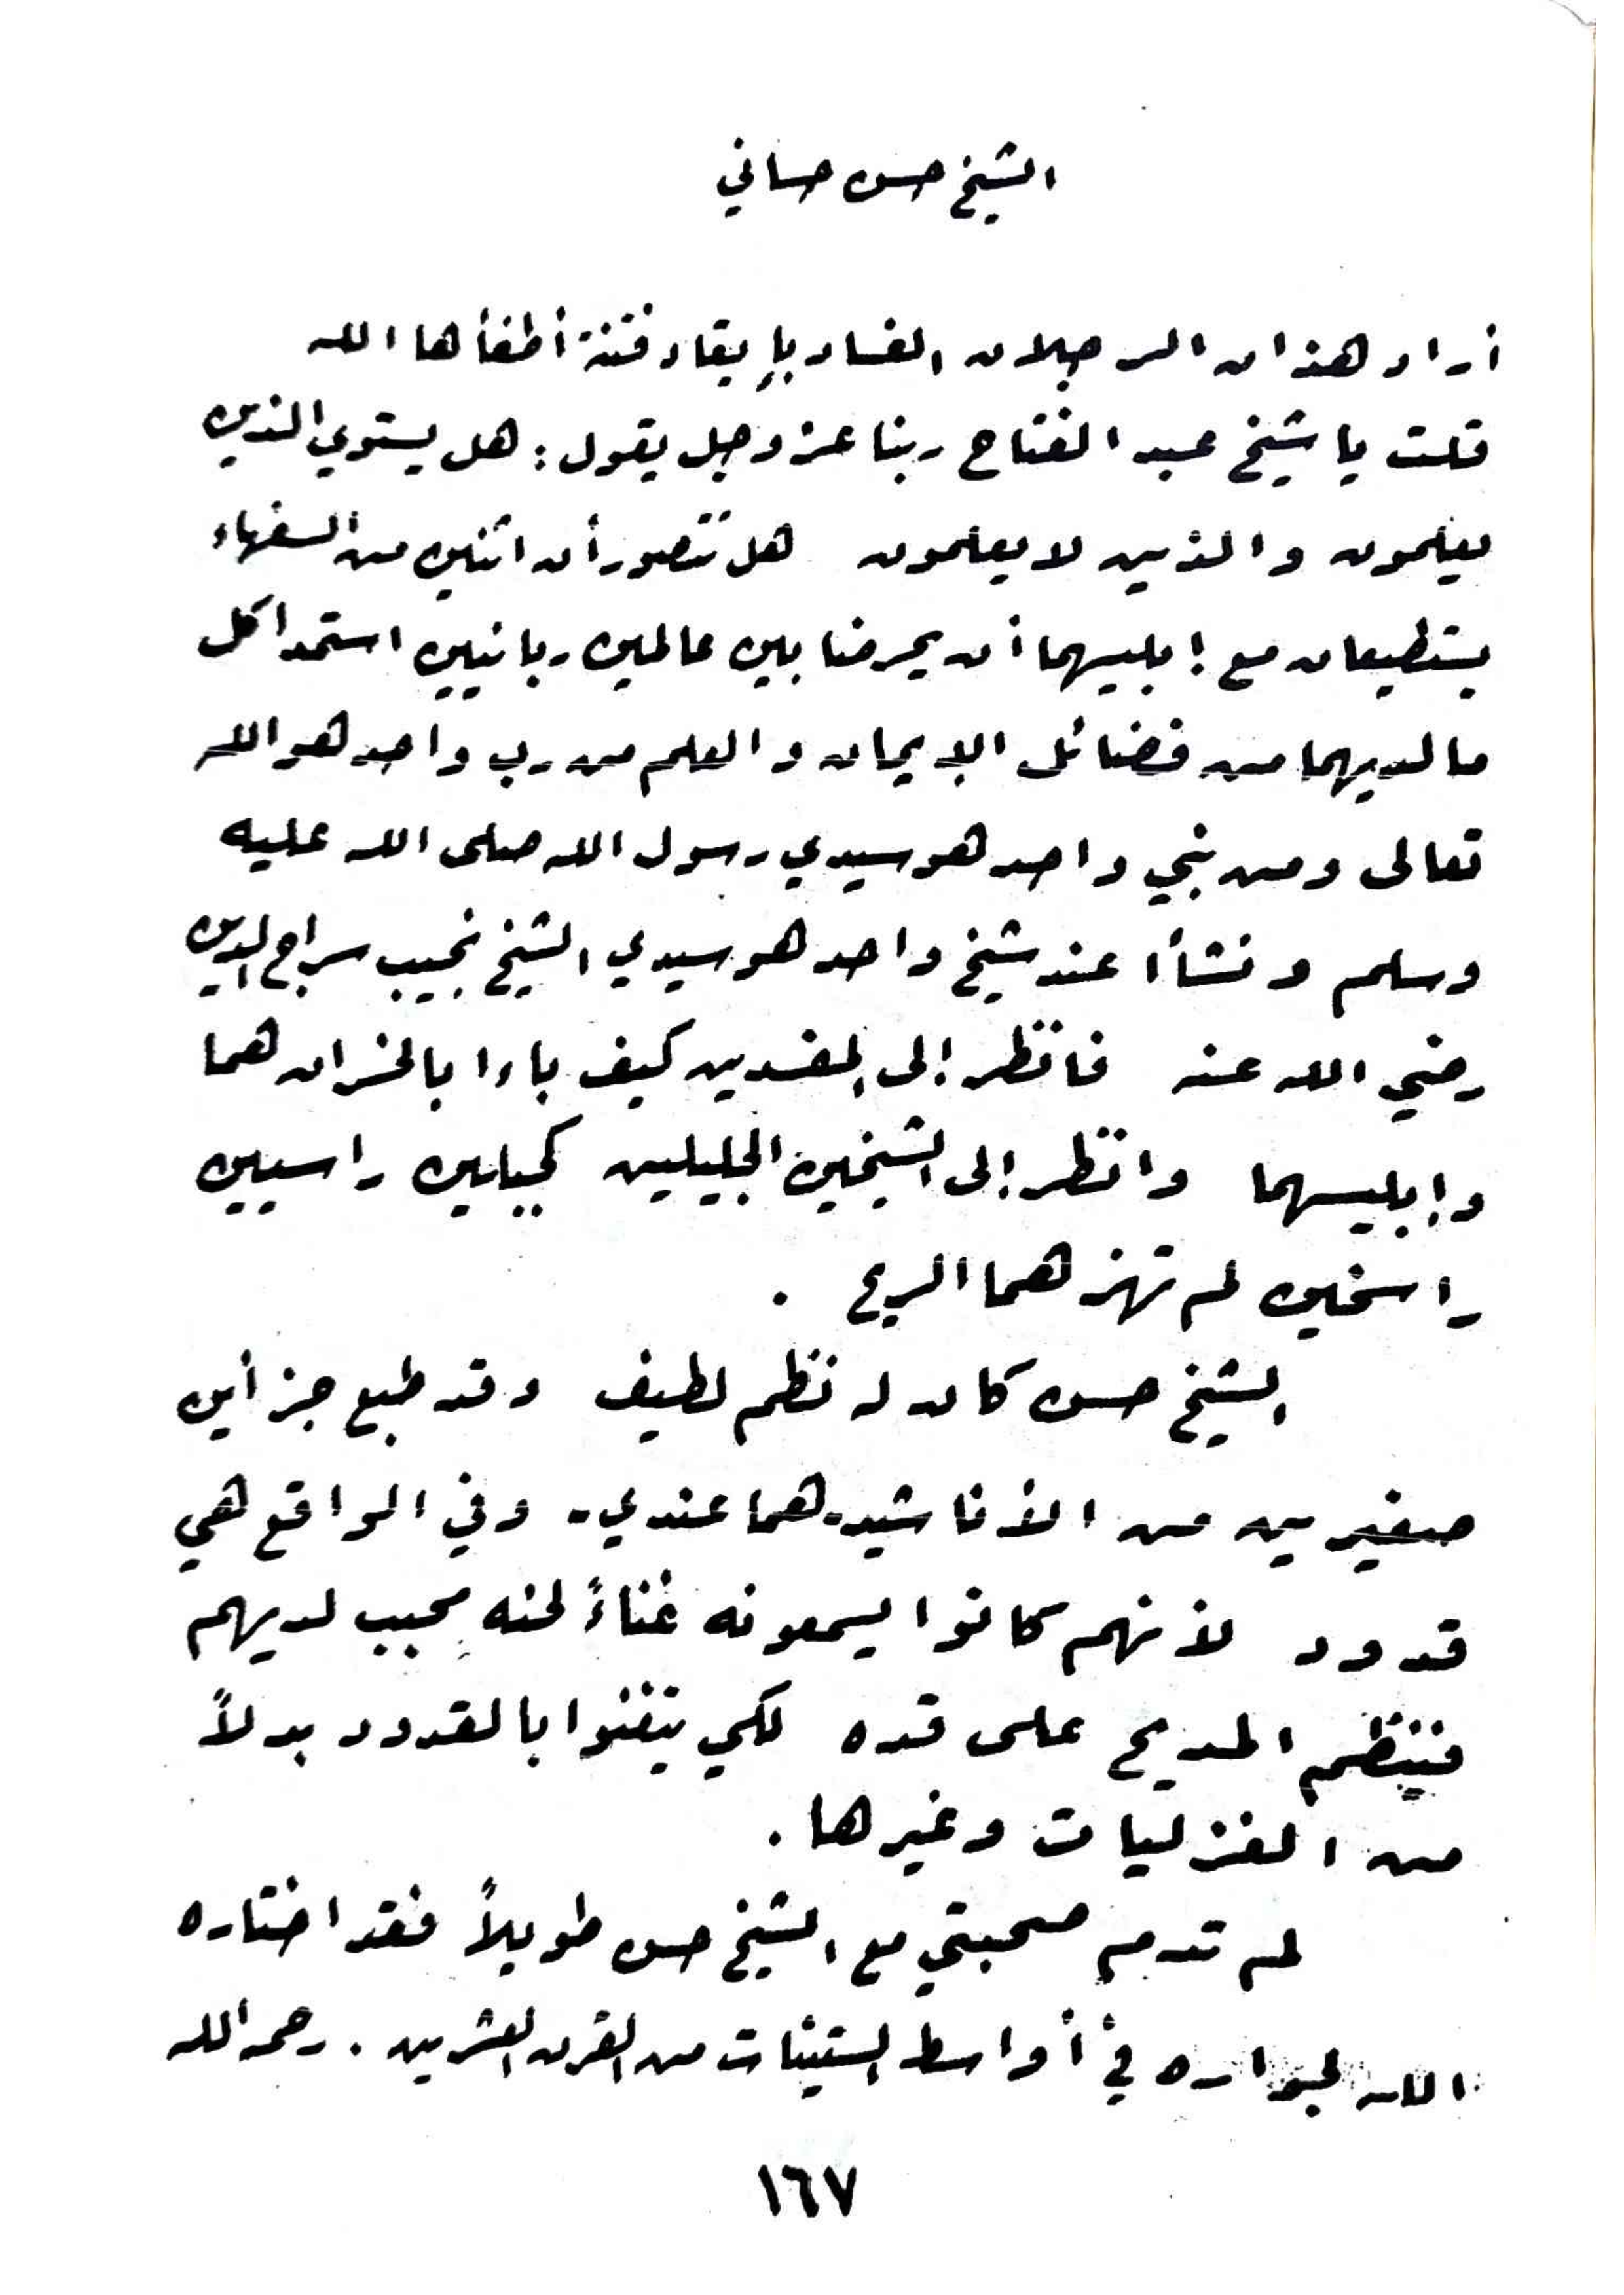 الشيخ حسن حساني
أراد هذان الرجلان الفساد بإيقاد فتنة أطفأها الله
قلت يا شيخ عبد الفتاح ربنا عز وجل يقول : هل يستوي الذين
يعلمون والذين لا يعلمون هل تتصور أن اثنين من السفهاء
يستطيعان مع إبليسهما أن يحرضا بين عالمين ربانيين استمدا كل
ما لديهما من فضائل الإيمان والعلم من رب واحد هو الله
تعالى ومن نبي واحد هو سيدي رسول الله صلى الله عليه
وسلم ونشأا عند شيخ واحد هو سيدي الشيخ نجيب سراج الدين
رضي الله عنه فانظر إلى المفسدين كيف باءا بالخسران هما
وإبليسهما وانظر إلى الشيخين الجليلين كجبلين راسيين
راسخين لم تهزهما الريح .
الشيخ حسن كان له نظم لطيف وقد طبع جزأين
صغيرين من الأناشيد - هما عندي - وفي الواقع هي
قدود لأنهم كانوا يسمعونه غناءً لحنه محبب لديهم
فينظم المديح على قده لكي يتغنوا بالقدود بدلاً
من الغزليات وغيرها .
لم تدم صحبتي مع الشيخ حسن طويلاً فقد اختاره
الله لجواره في أواسط الستينات من القرن العشرين . رحمه الله
١٦٧